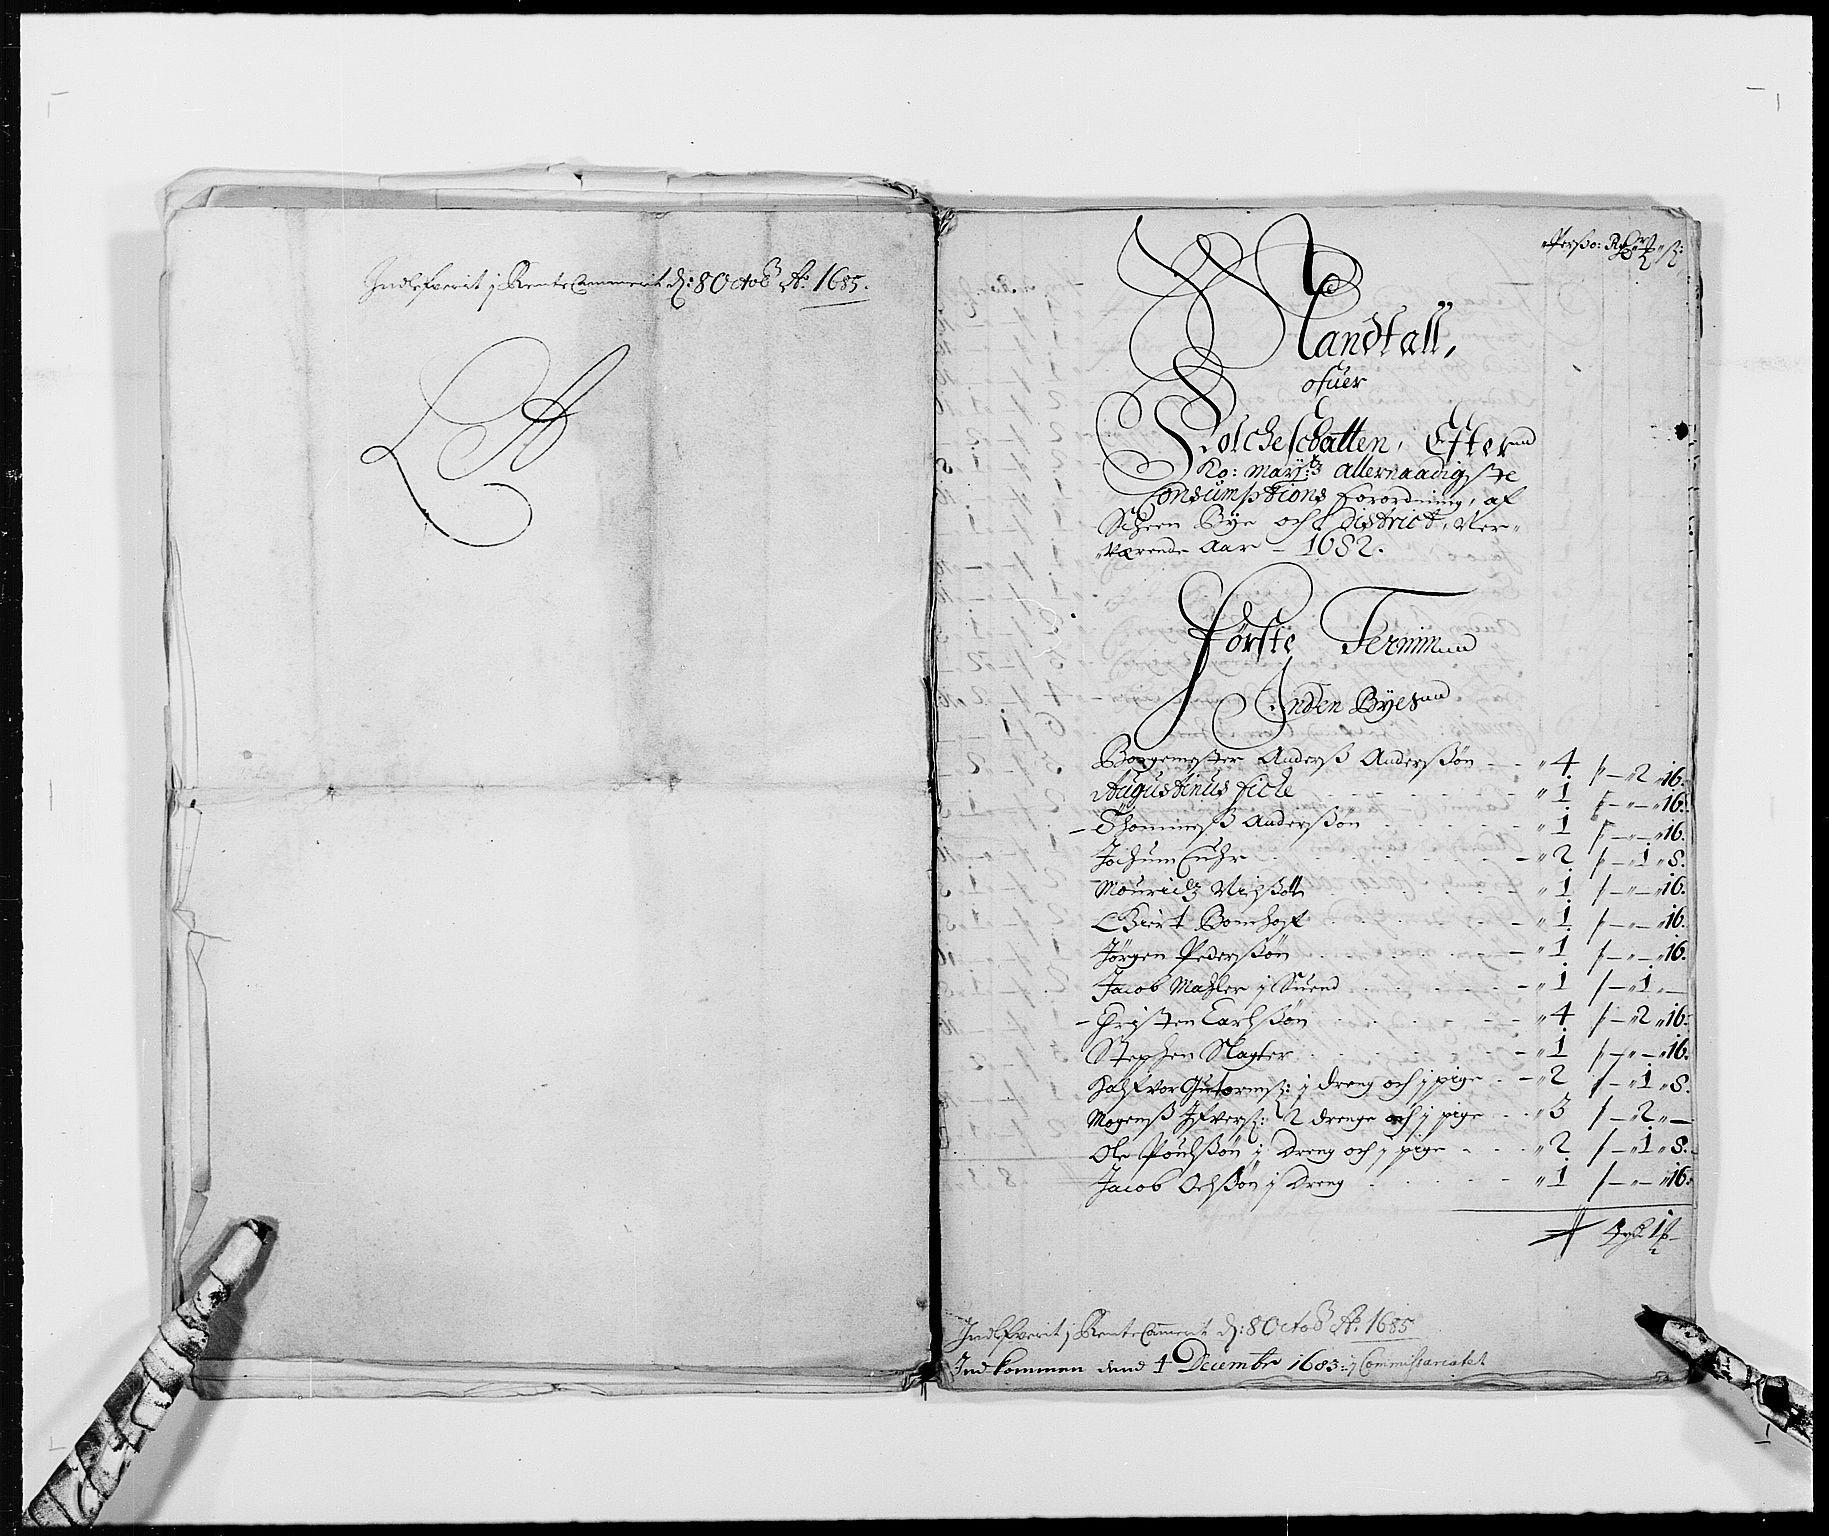 Indlefverit j Rente Cammerit d: 8 Octob A: 1685.
LA
Perßo: Rdr ort ß:
Mandtall,
ofuer
Folcheschatten, Effter
Ko: Mayj:tz allernaadigste
Consumptions forordning, af
Scheen Bye och District, Ner-
værende Aar - 1682.
Første Termin
Inden Byes
Borgemester Anderß Anderßøn - - 4 / - 2 16.
Augustinus fiche - 1 / - - 16.
- Thommeß Anderßøn - 1 / - - 16.
Jochum Cuhr - 2 / - 1 8.
Mouridz Nielßøn - 1 / - - 16.
Ebbert Bomhoff - 1 / - - 16.
Jørgen Pederßøn - 1 / - - 16.
Jacob Mahler j Suend - 1 / - 1 -
- Christen Carlßøn - 4 / - 2 16.
Stephen Slagter - 1 / - - 16.
Halfvor Gutormß: j dreng och j pige - 2 / - 1 8.
Mogenß Ifverß: 2 drenge och j pige - 3 / - 2 -
Ole Poulßøn j Dreng och j pige - 2 / - 1 8.
Jacob Olßøn j Dreng - 1 / - - 16.
Indlefverit j Rente Camerit d: 8 Octob A: 1685
Indkommen dend 4 Decembr 1683: j Commissariatet